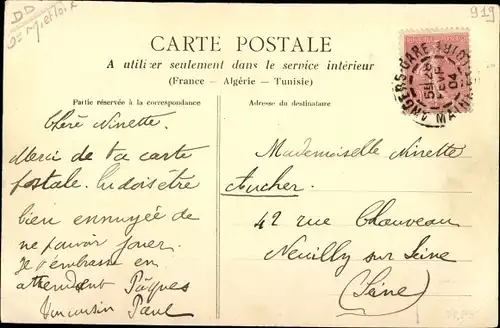 DD
919
CARTE POSTALE
A utiliser seulement dans le service intérieur
(France - Algérie - Tunisie)
Partie réservée à la correspondance
Adresse du destinataire
ANGERS-GARE
MAINE
FEVR
04
Chère Ninette.
Merci de ta carte
postale. tu dois être
bien ennuyée de
ne pouvoir jouer.
Je t'embrasse en
attendent Pâques
Ton cousin Paul
Mademoiselle Ninette
Aucher.
42 rue Chauveau
Neuilly sur Seine
(Seine)